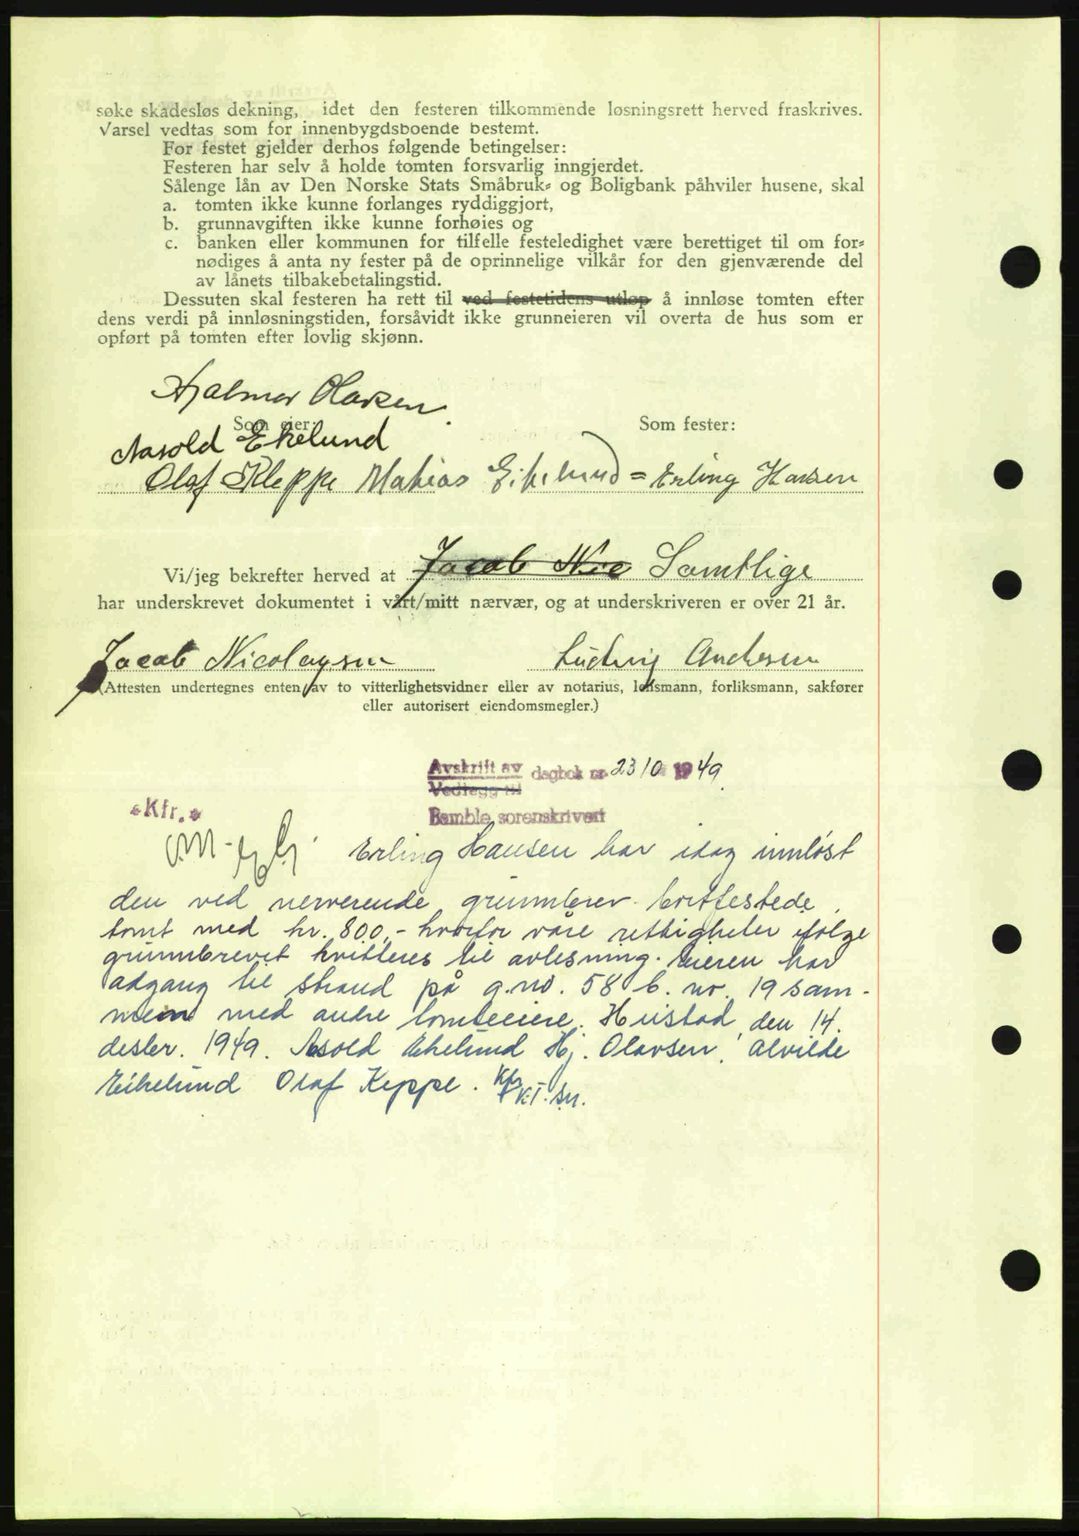 søke skadesløs dekning, idet den festeren tilkommende løsningsrett herved fraskrives.
Varsel vedtas som for innenbygdsboende bestemt.
For festet gjelder derhos følgende betingelser:
Festeren har selv å holde tomten forsvarlig inngjerdet.
Sålenge lån av Den Norske Stats Småbruk- og Boligbank påhviler husene, skal
a. tomten ikke kunne forlanges ryddiggjort,
b. grunnavgiften ikke kunne forhøies og
c. banken eller kommunen for tilfelle festeledighet være berettiget til om for-
nødiges å anta ny fester på de oprinnelige vilkår for den gjenværende del
av lånets tilbakebetalingstid.
Dessuten skal festeren ha rett til ved festetidens utløp å innløse tomten efter
dens verdi på innløsningstiden, forsåvidt ikke grunneieren vil overta de hus som er
opført på tomten efter lovlig skjønn.
Hjalmar Olavsen
Som eier: Som fester:
Aasold Ekelund
Olaf Kleppe Mathias Eikelund = Erling Hansen
Vi/jeg bekrefter herved at Jacob Nic Samtlige
har underskrevet dokumentet i vårt/mitt nærvær, og at underskriveren er over 21 år.
Jacob Nicolaysen Ludvig Andersen
(Attesten undertegnes enten av to vitterlighetsvidner eller av notarius, lensmann, forliksmann, sakfører
eller autorisert eiendomsmegler.)
Avskrift av dagbok nr. 2310 1949
Vedlegg til
Kfr. Bamble sorenskriveri
Erling Hansen har idag innløst
den ved nerverende grunnbrev bortfestede
tomt med kr. 800,- hvorfor våre rettigheter ifølge
grunnbrevet kvitteres til avlesning. Eieren har
adgang til strand på g.no. 58 b. nr. 19 sam-
men med andre tomteeiere. Hustad, den 14.
desbr. 1949. Asold Ekelund Hj. Olavsen. Alvilde
Eikelund Olaf Keppe.